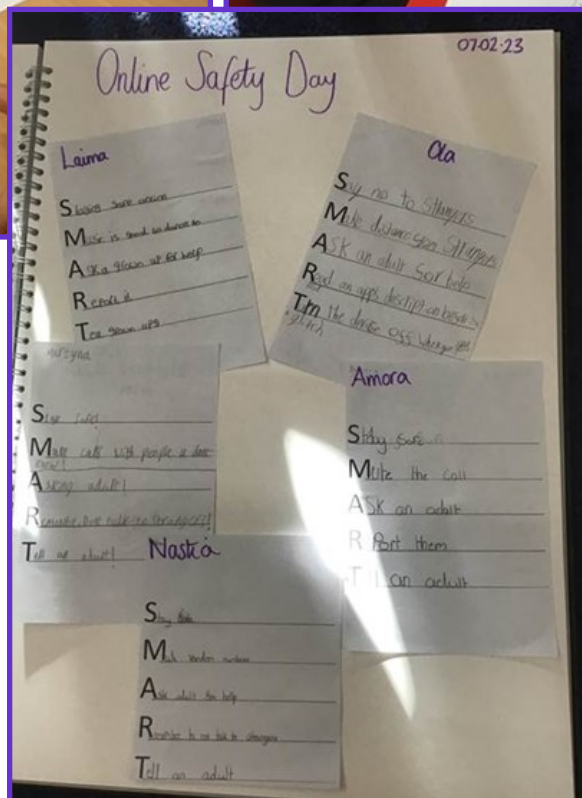 07.02.23
Online Safety Day
Laima
Staying safe online
Music is good to dance to
Ask a grown up for help
Report it
Tell grown ups
Ola
Say no to strangers
Make distance from strangers
ASK an adult for help
Read an apps description before
Turn the device off when you
glitch
Stay safe!
Mute calls with people u dont
Asking adult!
Remember, dont talk to strangers!
Tell an adult!
Amora
Stay safe
Mute the call
ASK an adult
R Port them
Tell an adult
Nastia
Stay Safe
Mute random numbers
Ask adult for help
Remember to not talk to strangers
Tell an adult